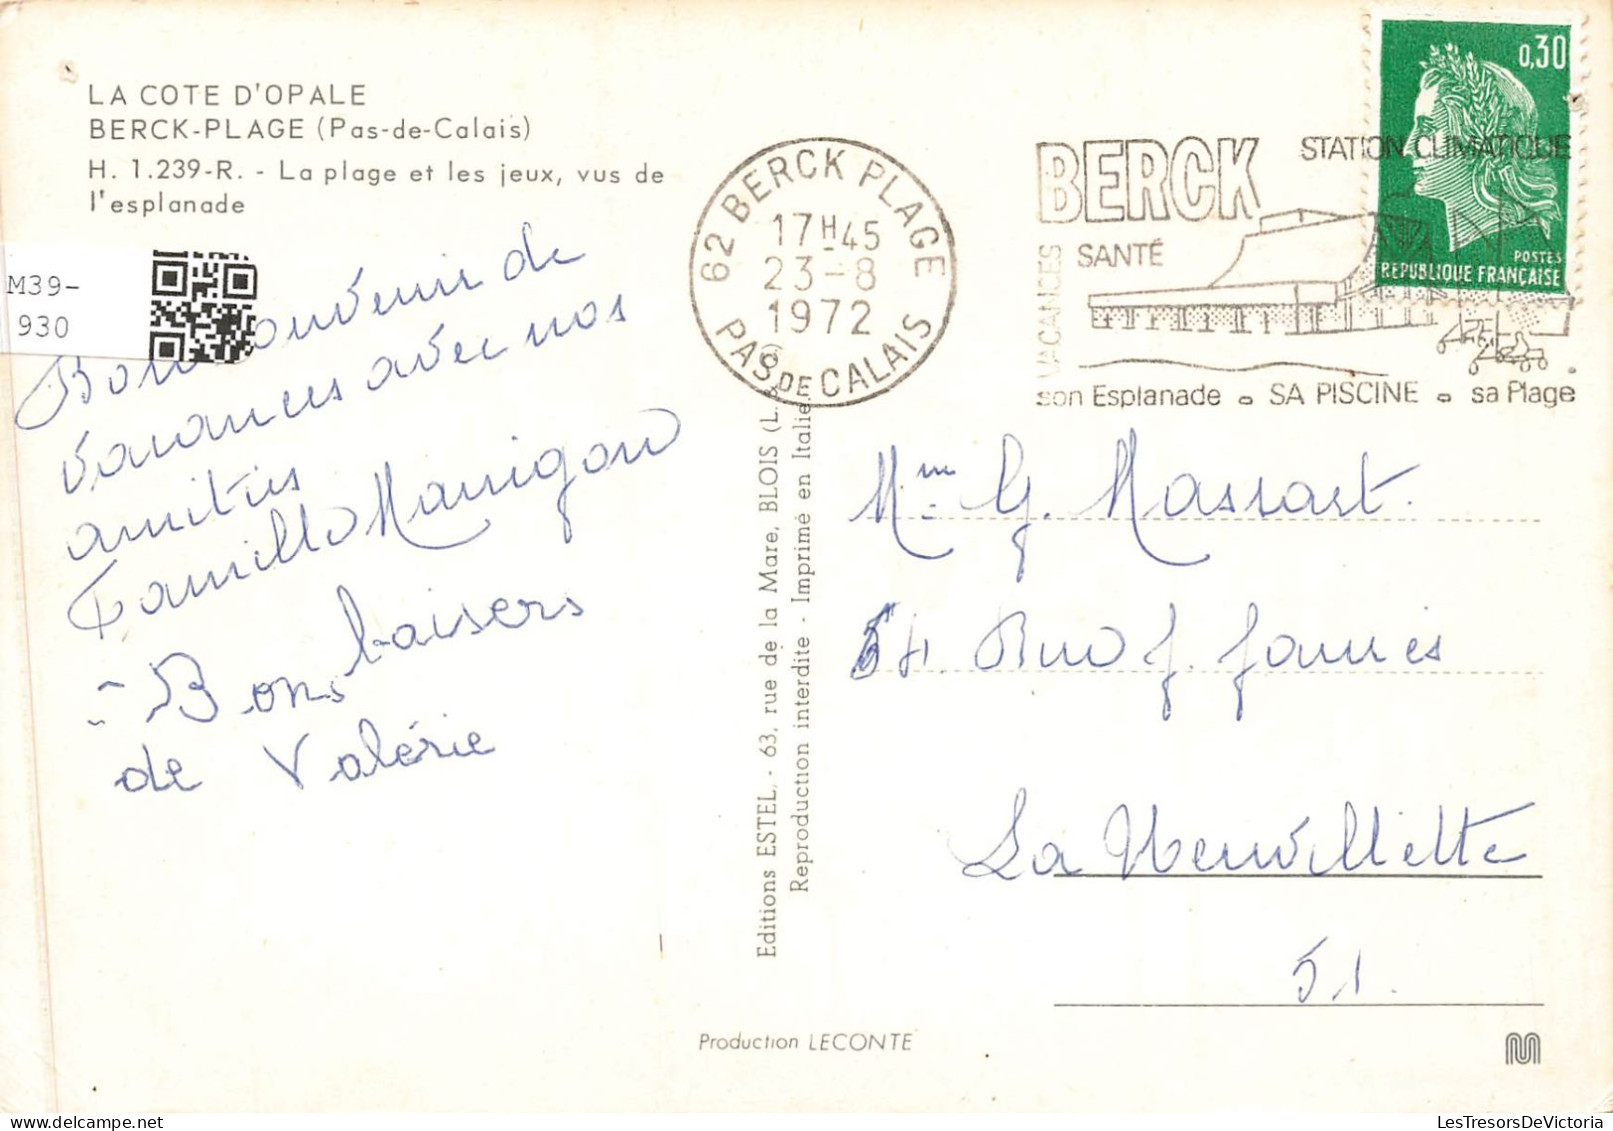 LA COTE D'OPALE
BERCK-PLAGE (Pas-de-Calais)
H. 1.239-R. - La plage et les jeux, vus de
l'esplanade
M39-
930
Bon souvenir de
vacances avec nos
amitiés
Famille Manigon
- Bons baisers
de Valérie
62 BERCK PLAGE
17H45
23-8
1972
PAS DE CALAIS
BERCK
STATION CLIMATIQUE
SANTÉ
VACANCES
son Esplanade o SA PISCINE o sa Plage
0,30
POSTES
REPUBLIQUE FRANÇAISE
Editions ESTEL, - 63, rue de la Mare, BLOIS (L.
Reproduction interdite - Imprimé en Italie
Mme G. Massart.
54 Rue J. Jaurès
La Neuvillette
51.
Production LECONTE
LesTresorsDeVictoria